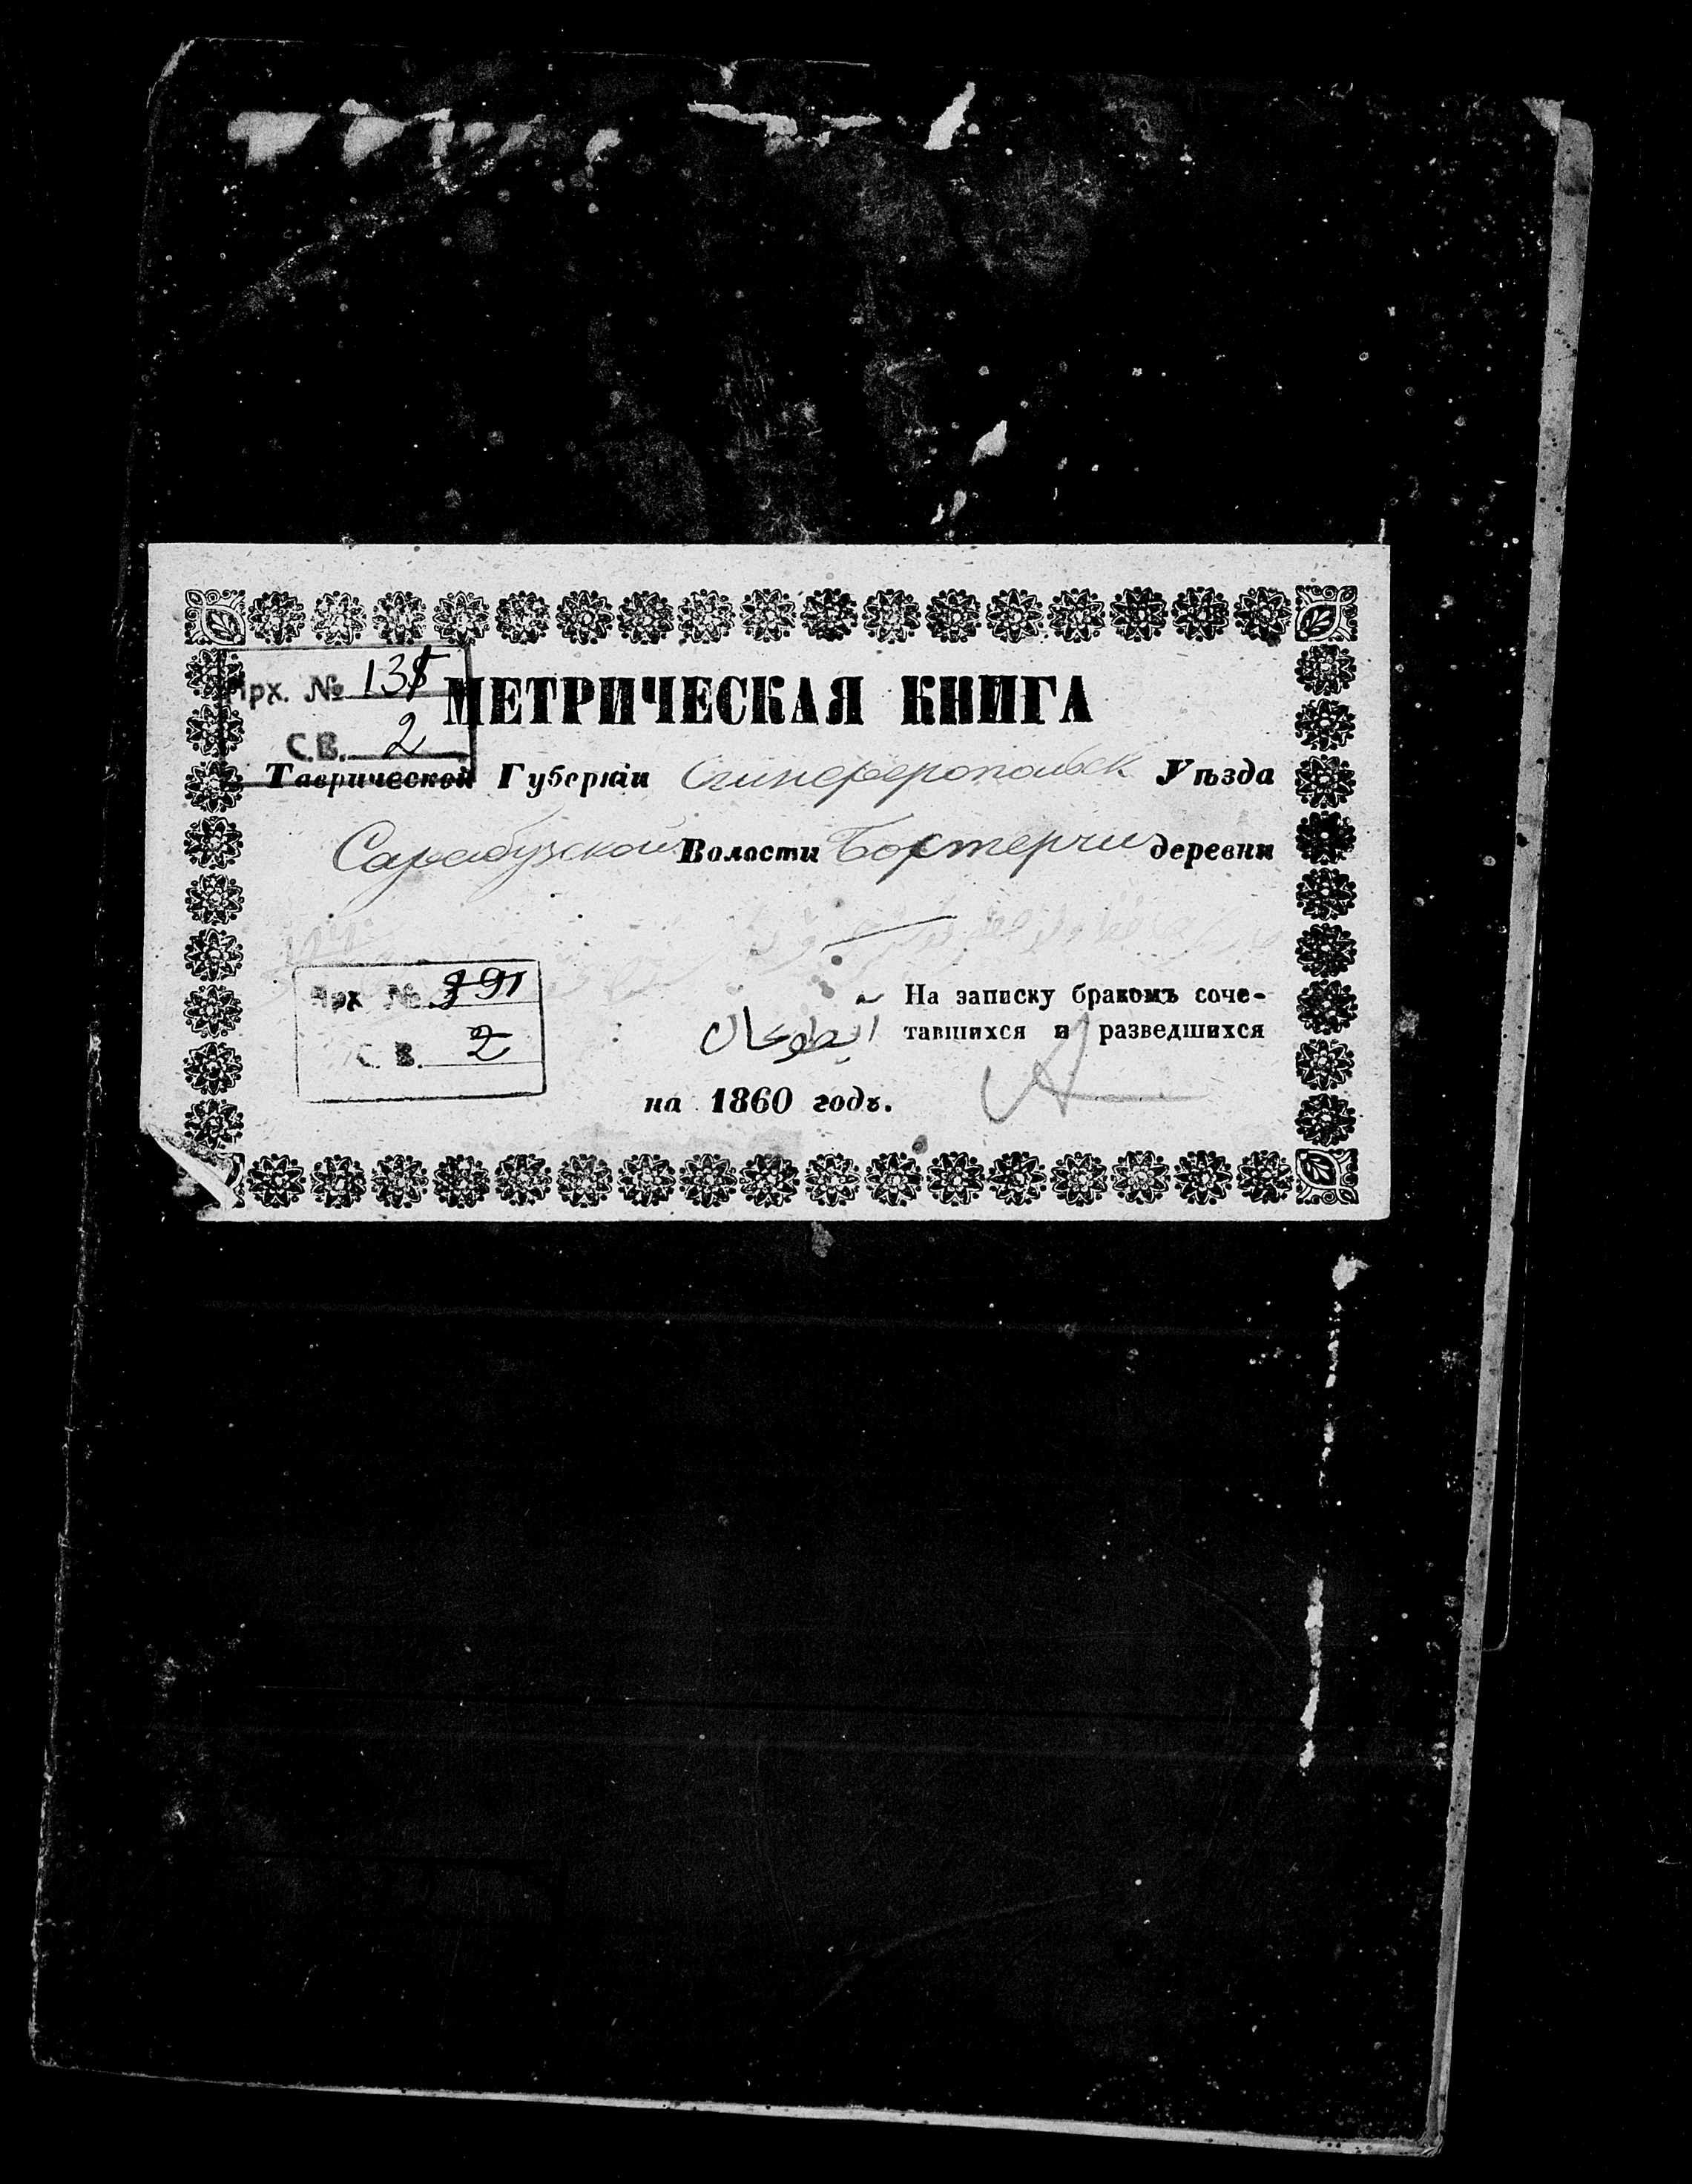 Арх. № 135
С.В. 2
МЕТРИЧЕСКАЯ КНИГА
Таврической Губерніи Симферопольск Уѣзда
Сарабузской Волости Бохтерчи деревни
Арх № 391
С. В. 2
На записку бракомъ соче-
тавшихся и разведшихся
на 1860 годъ.